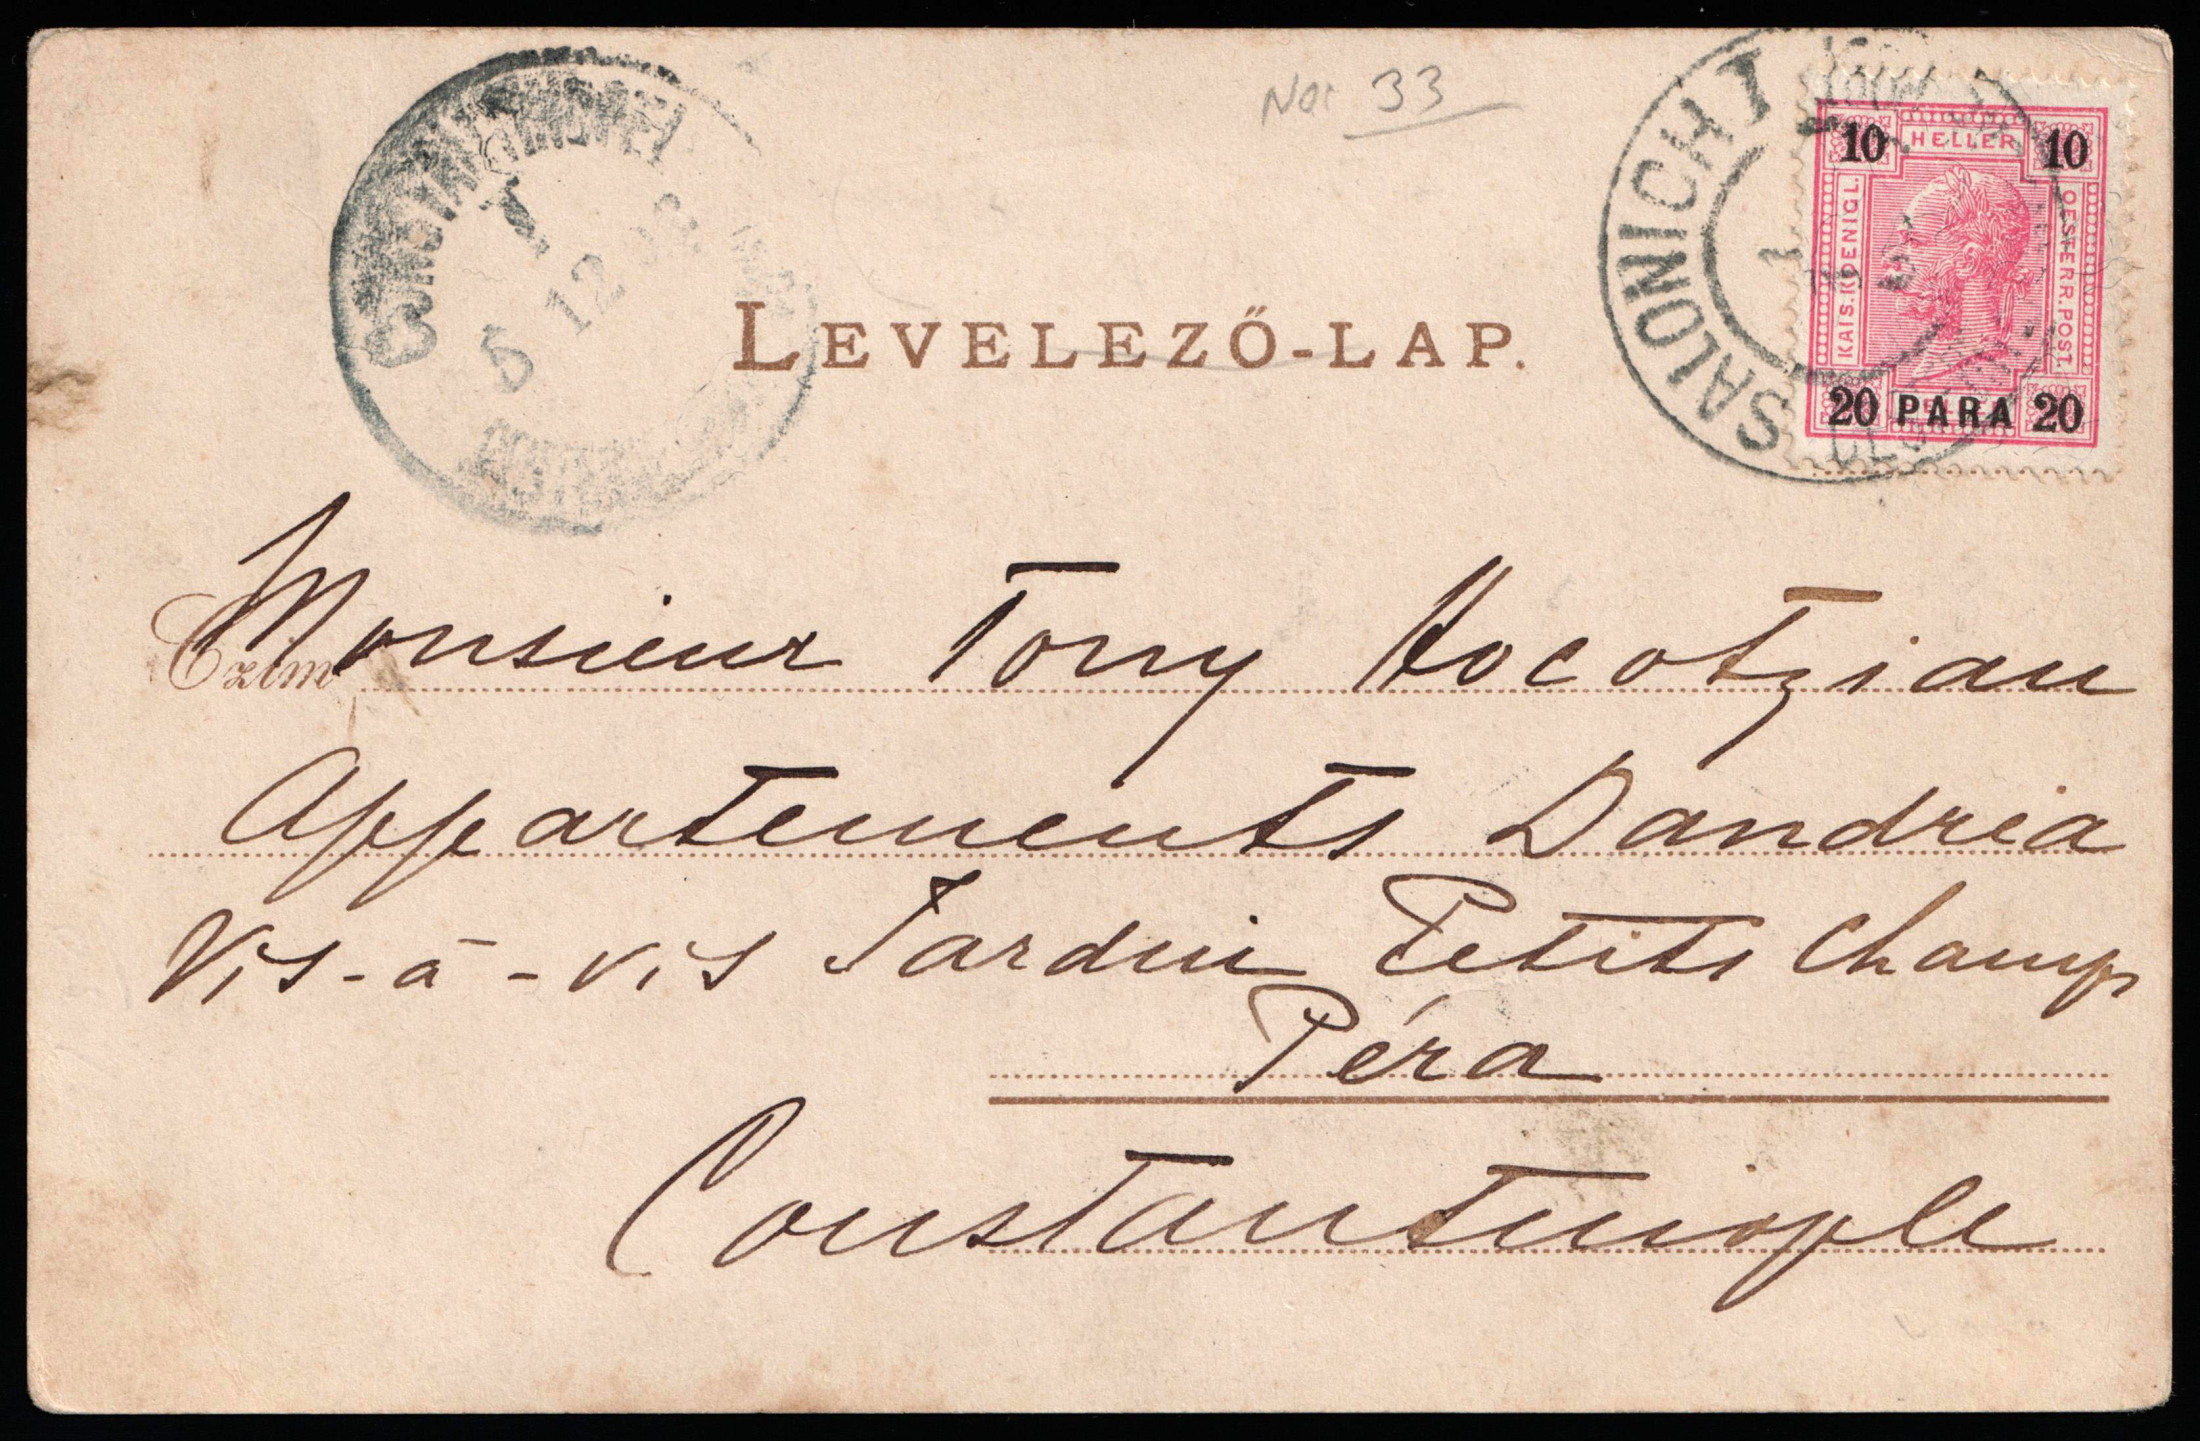 No: 33
LEVELEZŐ-LAP.
SALONICHI
10 HELLER 10
KAIS. KOENIGL.
OESTERR. POST.
20 PARA 20
5 12
Czim
Monsieur Tony Hocotzian
Appartements Dandria
Vis-à-vis Jardin Petits Champs
Péra
Constantinople